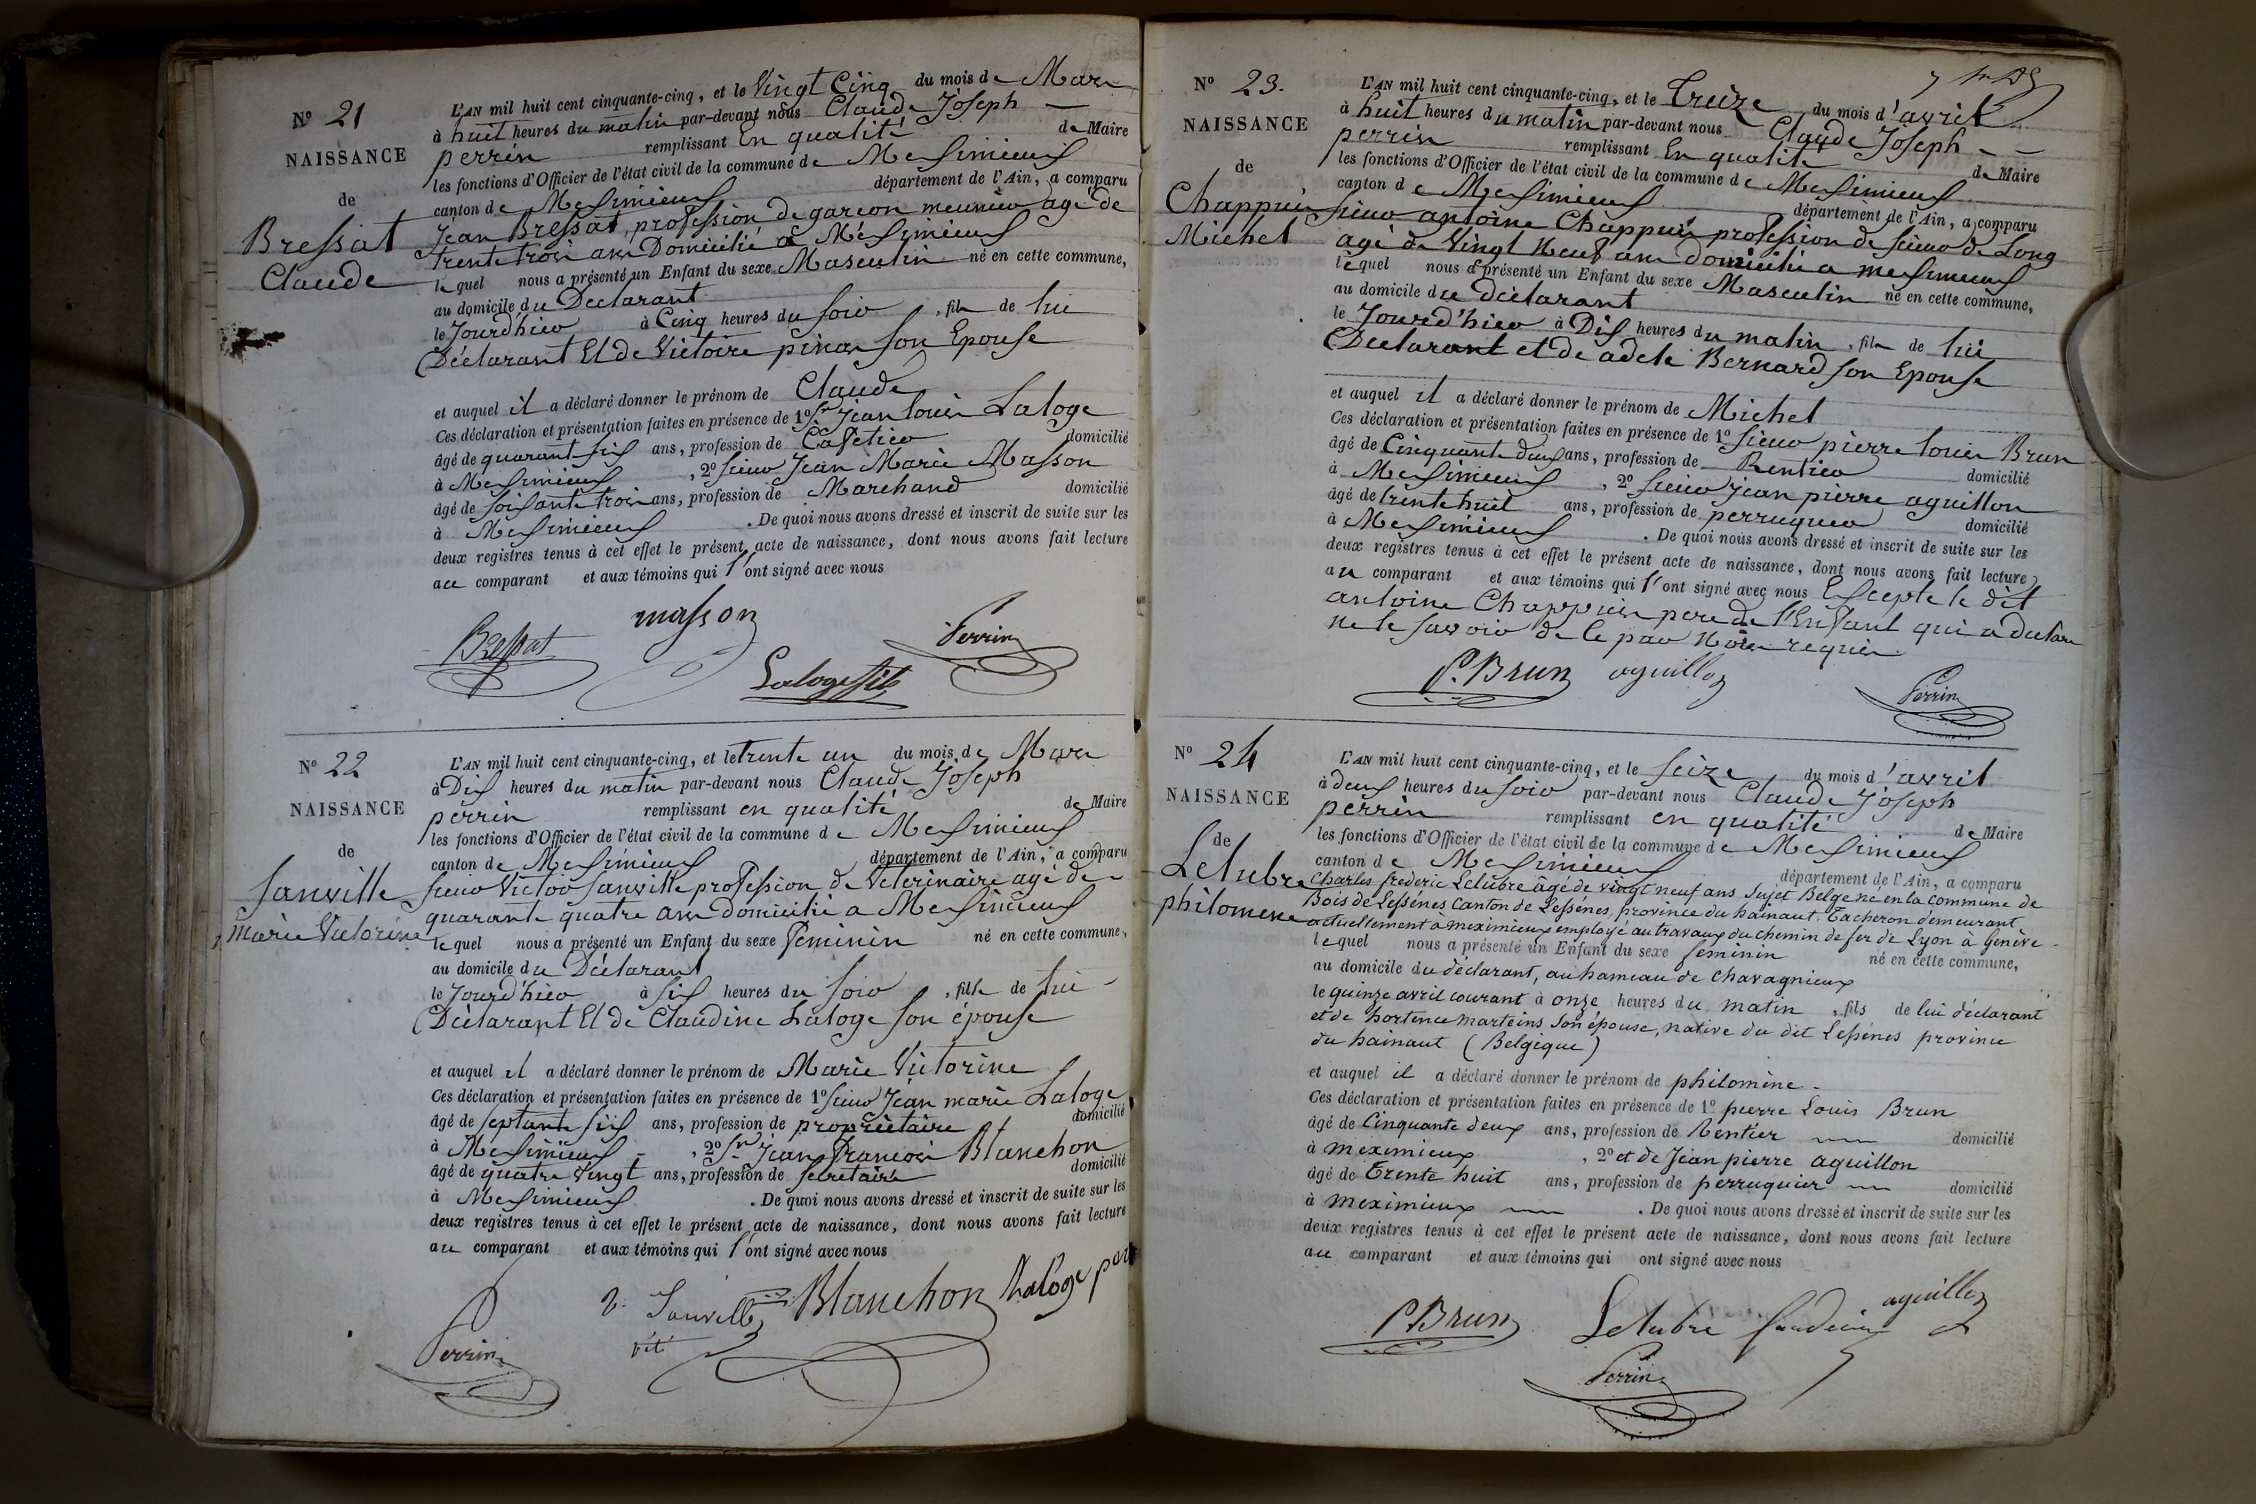 N° 21
NAISSANCE
de
Bressat
Claude
L'AN mil huit cent cinquante-cinq, et le Vingt Cinq du mois de Mars
à huit heures du matin par-devant nous Claude Joseph
perrin remplissant En qualité de Maire
les fonctions d'Officier de l'état civil de la commune de Meximieux
canton de Meximieux département de l'Ain, a comparu
Jean Bressat, profession de garcon meunier agé de
trente trois ans Domicilié a Méximieux
lequel nous a présenté un Enfant du sexe Masculin né en cette commune,
au domicile du Declarant
le Jourd'hier à Cinq heures du soir , fils de lui
Déclarant Et de Victoire pinar son Epouse
et auquel il a déclaré donner le prénom de Claude
Ces déclaration et présentation faites en présence de 1° Sr Jean louis Laloge
âgé de quarant six ans, profession de Cafetier domicilié
à Meximieux , 2° sieur Jean Marie Masson
âgé de soisante trois ans, profession de Marchand domicilié
à Meximieux . De quoi nous avons dressé et inscrit de suite sur les
deux registres tenus à cet effet le présent acte de naissance, dont nous avons fait lecture
au comparant et aux témoins qui l'ont signé avec nous
Bressat masson Perrin
Laloge fils
N° 22
NAISSANCE
de
Janville
Marie Victorine
L'AN mil huit cent cinquante-cinq, et le trente un du mois de Mars
à Dix heures du matin par-devant nous Claude Joseph
perrin remplissant en qualité de Maire
les fonctions d'Officier de l'état civil de la commune de Meximieux
canton de Meximieux département de l'Ain, a comparu
sieur Victor Janville profession de Veterinaire agé de
quarante quatre ans domicilié a Meximieux
lequel nous a présenté un Enfant du sexe feminin né en cette commune,
au domicile du Déclarant
le Jourd'hier à six heures du soir , fille de lui
Déclarant Et de Claudine Laloge son épouse
et auquel il a déclaré donner le prénom de Marie Victorine
Ces déclaration et présentation faites en présence de 1° sieur Jéan marie Laloge
âgé de septante six ans, profession de propriétaire domicilié
à Meximieux , 2° Sr Jean francois Blanchon
âgé de quatre vingt ans, profession de secretaire domicilié
à Meximieux . De quoi nous avons dressé et inscrit de suite sur les
deux registres tenus à cet effet le présent acte de naissance, dont nous avons fait lecture
au comparant et aux témoins qui l'ont signé avec nous
Perrin Janville Blanchon Laloge
N° 23.
NAISSANCE
de
Chappuis
Michel
L'AN mil huit cent cinquante-cinq, et le treize du mois d'avril
à huit heures du matin par-devant nous Claude Joseph
perrin remplissant En qualité de Maire
les fonctions d'Officier de l'état civil de la commune de Meximieux
canton de Meximieux département de l'Ain, a comparu
sieur antoine Chappuis profession de scieur de Long
agé de Vingt Neuf ans domicilié a meximieux
lequel nous a présenté un Enfant du sexe Masculin né en cette commune,
au domicile du déclarant
le Jourd'hier à Dix heures du matin , fils de lui
Declarant et de adele Bernard son Epouse
et auquel il a déclaré donner le prénom de Michel
Ces déclaration et présentation faites en présence de 1° sieur pierre louis Brun
âgé de Cinquante deux ans, profession de Rentier domicilié
à Meximieux , 2° sieur jean pierre aguillon
âgé de trente huit ans, profession de perruquier domicilié
à Meximieux . De quoi nous avons dressé et inscrit de suite sur les
deux registres tenus à cet effet le présent acte de naissance, dont nous avons fait lecture
au comparant et aux témoins qui l'ont signé avec nous Excepte le dit
antoine Chappuis pere de l'Enfant qui a declare
ne le savoir de ce par Nous requis
P. Brun aguillon
Perrin
N° 24
NAISSANCE
de
Letubre
philomene
L'AN mil huit cent cinquante-cinq, et le seize du mois d'avril
à deux heures du soir par-devant nous Claude Joseph
perrin remplissant en qualité de Maire
les fonctions d'Officier de l'état civil de la commune de Meximieux
canton de Meximieux département de l'Ain, a comparu
Charles frederic Letubre âgé de vingt neuf ans Sujet Belge né en la commune de
Bois de Lessénes Canton de Lessénes, province du hainaut, Tacheron demeurant
actuellement à meximieux employé au travaux du chemin de fer de Lyon à Genève
lequel nous a présenté un Enfant du sexe feminin né en cette commune,
au domicile du déclarant, au hameau de chavagnieux
le quinze avril courant à onze heures du matin , fils de lui déclarant
et de hortence marteins son épouse, native du dit Lessénes province
du hainaut (Belgique)
et auquel il a déclaré donner le prénom de philomène.
Ces déclaration et présentation faites en présence de 1° pierre Louis Brun
âgé de Cinquante deux ans, profession de Rentier domicilié
à meximieux , 2° et de Jean pierre aguillon
âgé de Trente huit ans, profession de perruquier domicilié
à meximieux . De quoi nous avons dressé et inscrit de suite sur les
deux registres tenus à cet effet le présent acte de naissance, dont nous avons fait lecture
au comparant et aux témoins qui ont signé avec nous
P. Brun Letubre aguillon
Perrin